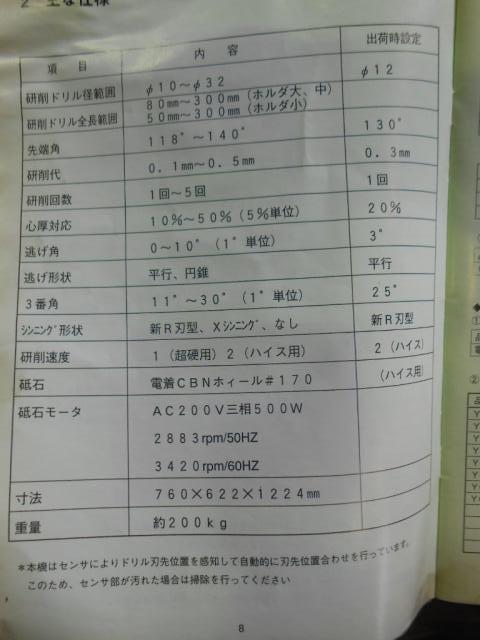 2 主な仕様
項 目 内 容 出荷時設定
研削ドリル径範囲 φ10～φ32 φ12
研削ドリル全長範囲 80mm～300mm（ホルダ大、中）
50mm～300mm（ホルダ小）
先端角 118°～140° 130°
研削代 0.1mm～0.5mm 0.3mm
研削回数 1回～5回 1回
心厚対応 10%～50%（5%単位） 20%
逃げ角 0～10°（1°単位） 3°
逃げ形状 平行、円錐 平行
3番角 11°～30°（1°単位） 25°
ｼﾝﾆﾝｸﾞ形状 新R刃型、Xｼﾝﾆﾝｸﾞ、なし 新R刃型
研削速度 1（超硬用）2（ハイス用） 2（ハイス）
砥石 電着CBNホィール#170 （ハイス用）
砥石モータ AC200V三相500W
2883rpm/50HZ
3420rpm/60HZ
寸法 760×622×1224mm
重量 約200kg
＊本機はセンサによりドリル刃先位置を感知して自動的に刃先位置合わせを行っています。
このため、センサ部が汚れた場合は掃除を行ってください
8